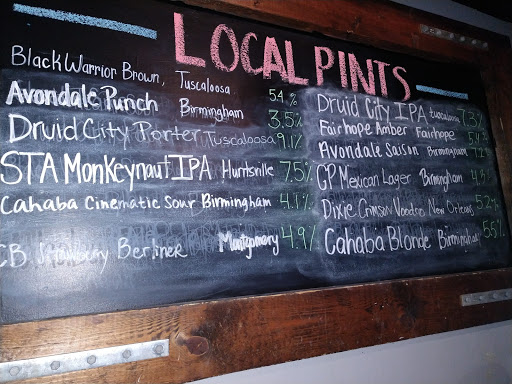 LOCAL PINTS
Black Warrior Brown, Tuscaloosa 5.4%
Avondale Punch Birmingham 3.5%
Druid City Porter Tuscaloosa 9.1%
STA Monkeynaut IPA Huntsville 7.5%
Cahaba Cinematic Sour Birmingham 4.1%
CB Strawbury Berliner Montgomery 4.9%
Druid City IPA Tuscaloosa 7.3%
Fairhope Amber Fairhope
Avondale Saison Birmingham
GP Mexican Lager Birmingham
Dixie Crimson Voodoo New Orleans 5.2%
Cahaba Blonde Birmingham 5.5%